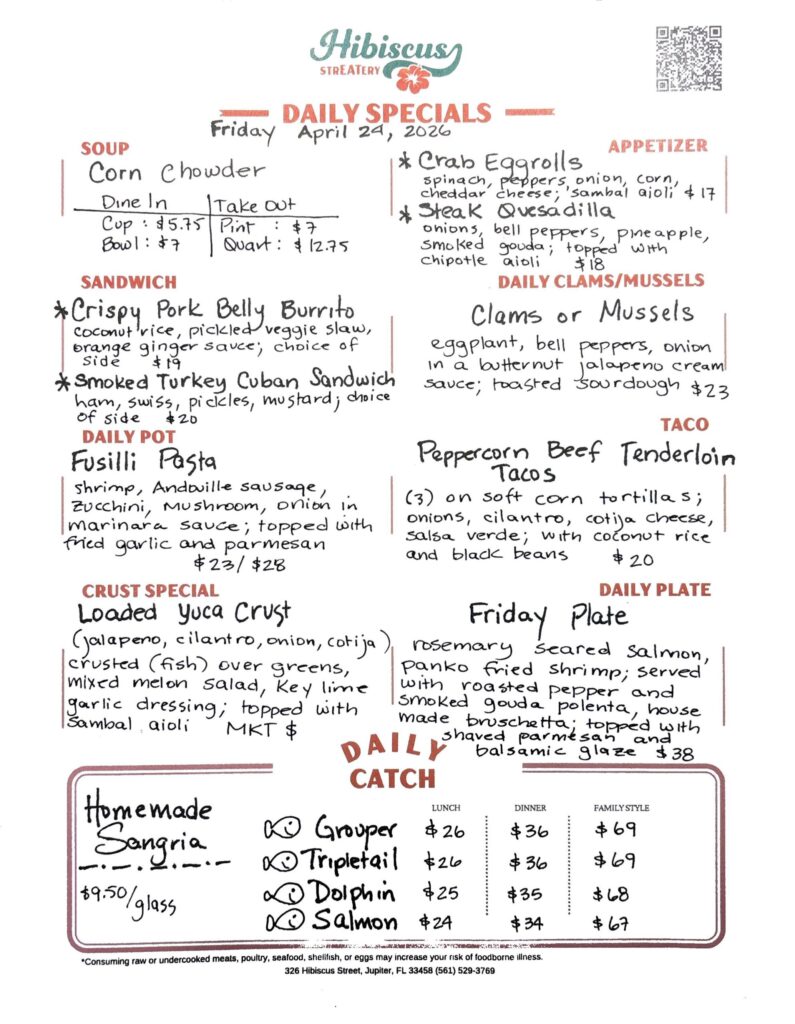 Hibiscus
STREATERY
DAILY SPECIALS
Friday April 24, 2026
SOUP
Corn Chowder
Dine In | Take Out
Cup : $5.75 | Pint : $7
Bowl : $7 | Quart : $12.75
APPETIZER
* Crab Eggrolls
spinach, peppers, onion, corn,
cheddar cheese; sambal aioli $17
* Steak Quesadilla
onions, bell peppers, pineapple,
smoked gouda; topped with
chipotle aioli $18
SANDWICH
* Crispy Pork Belly Burrito
coconut rice, pickled veggie slaw,
orange ginger sauce; choice of
side $19
* Smoked Turkey Cuban Sandwich
ham, swiss, pickles, mustard; choice
of side $20
DAILY CLAMS/MUSSELS
Clams or Mussels
eggplant, bell peppers, onion
in a butternut jalapeno cream
sauce; toasted sourdough $23
DAILY POT
Fusilli Pasta
shrimp, Andouille sausage,
zucchini, mushroom, onion in
marinara sauce; topped with
fried garlic and parmesan
$23/$28
TACO
Peppercorn Beef Tenderloin
Tacos
(3) on soft corn tortillas;
onions, cilantro, cotija cheese,
salsa verde; with coconut rice
and black beans $20
CRUST SPECIAL
Loaded Yuca Crust
(jalapeno, cilantro, onion, cotija)
crusted (fish) over greens,
mixed melon salad, key lime
garlic dressing; topped with
sambal aioli MKT $
DAILY PLATE
Friday Plate
rosemary seared salmon,
panko fried shrimp; served
with roasted pepper and
smoked gouda polenta, house
made bruschetta; topped with
shaved parmesan and
balsamic glaze $38
DAILY
CATCH
Homemade
Sangria
$9.50/glass
LUNCH DINNER FAMILY STYLE
Grouper $26 $36 $69
Tripletail $26 $36 $69
Dolphin $25 $35 $68
Salmon $24 $34 $67
*Consuming raw or undercooked meats, poultry, seafood, shellfish, or eggs may increase your risk of foodborne illness.
326 Hibiscus Street, Jupiter, FL 33458 (561) 529-3769